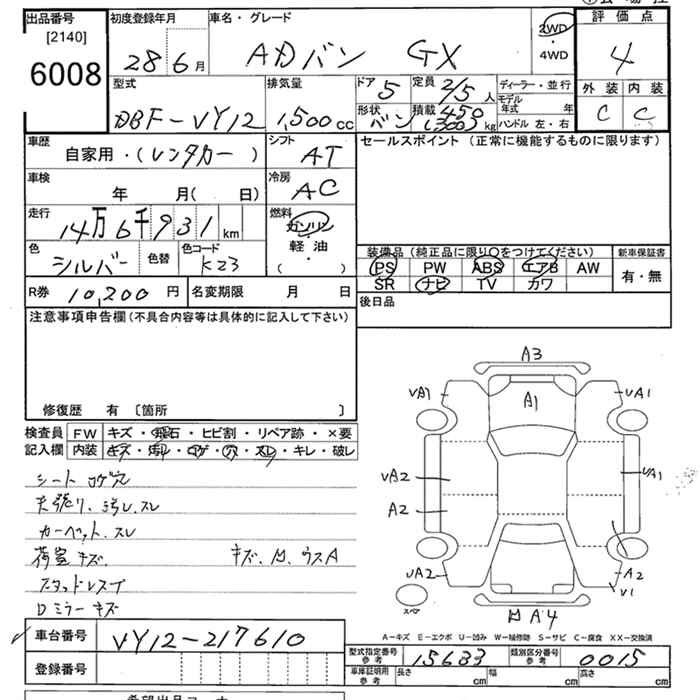 出品番号
[2140]
6008
初度登録年月
28年6月
車名・グレード
ADバン GX
2WD
・
4WD
評価点
4
外装 内装
C C
型式
DBF-VY12
排気量
1,500cc
ドア 5
定員 2/5人
形状 バン
積載 450(300)kg
ディーラー・並行
モデル年式 年
ハンドル 左・右
車歴
自家用・(レンタカー)
シフト
AT
セールスポイント (正常に機能するものに限ります)
車検
年 月( 日)
冷房
AC
走行
14万6千931km
燃料
ガソリン
軽・油
( )
色
シルバー
色替
色コード
K23
装備品(純正品に限り○をつけてください)
新車保証書
PS PW ABS エアB AW
有・無
SR ナビ TV カワ
R券 10,200円
名変期限 月 日
後日品
注意事項申告欄(不具合内容等は具体的に記入して下さい)
修復歴 有 〔箇所 〕
検査員 FW キズ・飛石・ヒビ割・リペア跡・×要
記入欄 内装 キズ・汚レ・コゲ・穴・スレ・キレ・破レ
シート コゲ穴
天張り、汚レ、スレ
カーペット、スレ
荷室 キズ、
キズ、凹、ウスA
スタッドレスT
Dミラーキズ
A3
UA1
A1
UA1
UA2
UA1
A2
UA2
A2
U1
スペア
凹A4
A-キズ E-エクボ U-凹み W-補修跡 S-サビ C-腐食 XX-交換済
車台番号
VY12-217610
登録番号
型式指定番号
参考
15683
類別区分番号
参考
0015
車庫証明用
参考
長さ cm
幅 cm
高さ cm